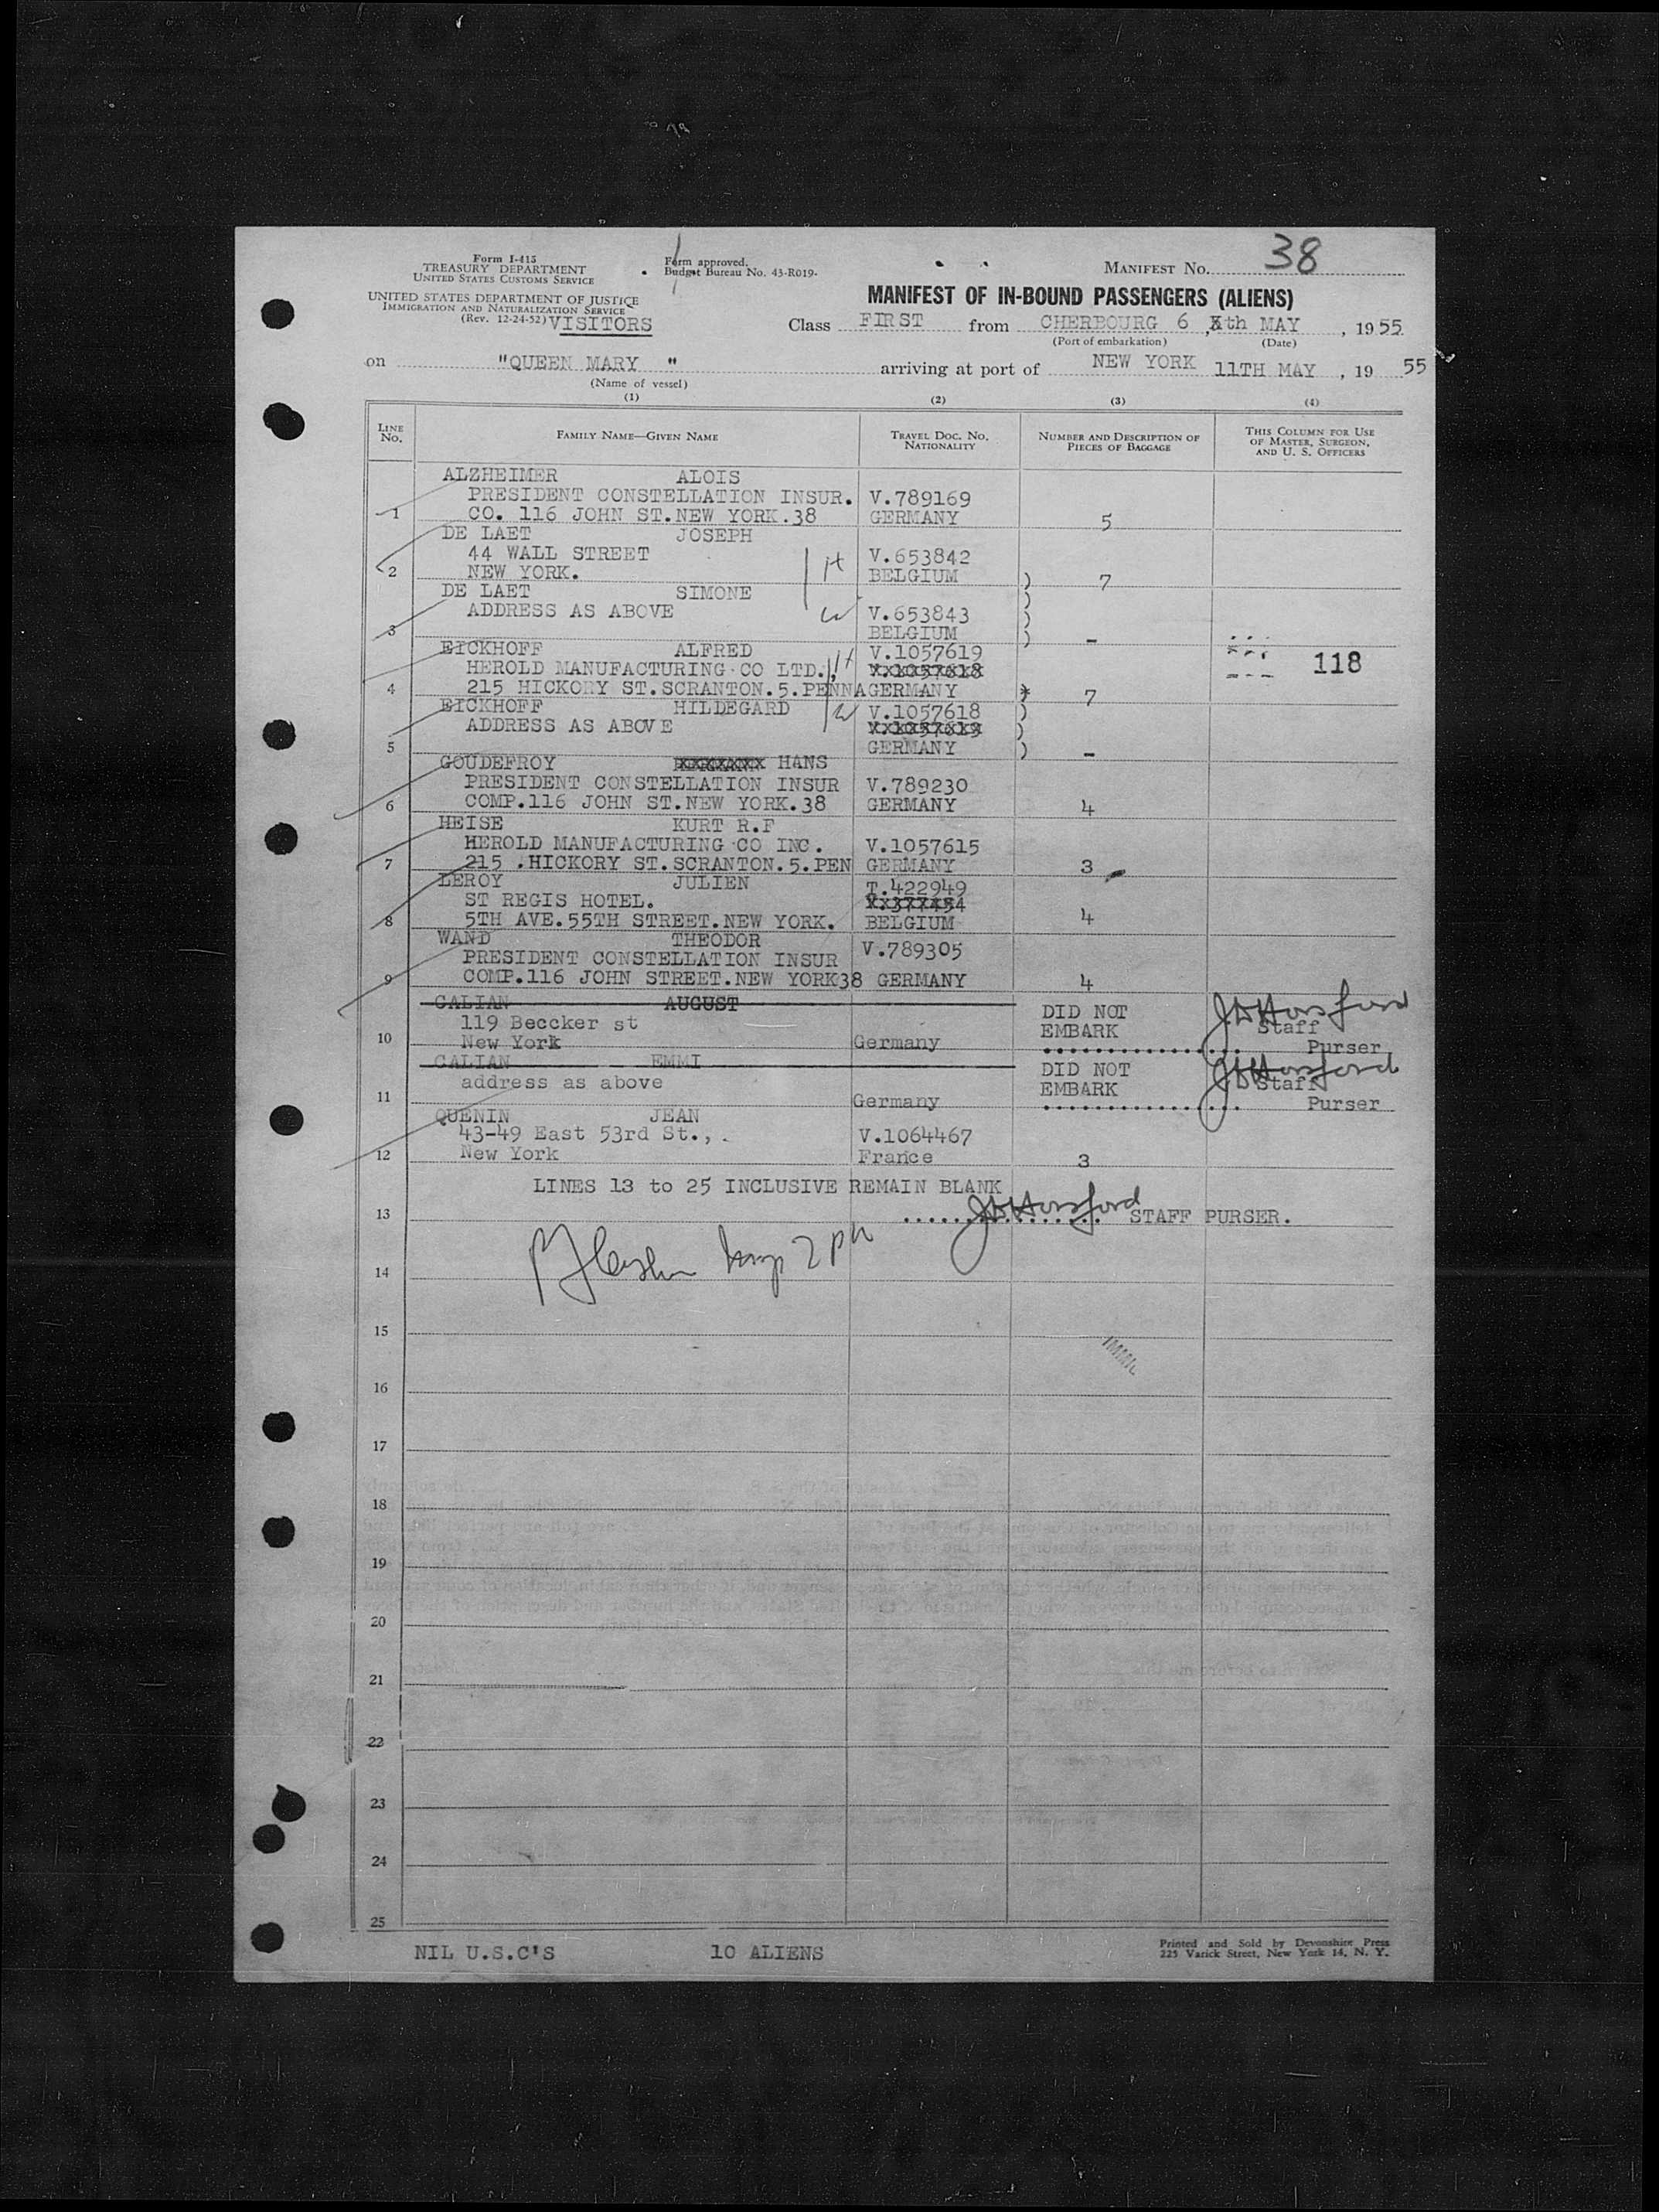 Form I-415
TREASURY DEPARTMENT
UNITED STATES CUSTOMS SERVICE
Form approved.
Budget Bureau No. 43-R019.
MANIFEST NO. 38
UNITED STATES DEPARTMENT OF JUSTICE
IMMIGRATION AND NATURALIZATION SERVICE
(Rev. 12-24-52) VISITORS
MANIFEST OF IN-BOUND PASSENGERS (ALIENS)
Class FIRST from CHERBOURG 6 th MAY, 1955
(Port of embarkation) (Date)
on "QUEEN MARY " arriving at port of NEW YORK 11TH MAY, 19 55
(Name of vessel)
(1) (2) (3) (4)
LINE No. FAMILY NAME—GIVEN NAME TRAVEL DOC. NO. NATIONALITY NUMBER AND DESCRIPTION OF PIECES OF BAGGAGE THIS COLUMN FOR USE OF MASTER, SURGEON, AND U. S. OFFICERS
ALZHEIMER ALOIS
PRESIDENT CONSTELLATION INSUR. V.789169
1 CO. 116 JOHN ST.NEW YORK.38 GERMANY 5
DE LAET JOSEPH
44 WALL STREET H V.653842
2 NEW YORK. BELGIUM ) 7
DE LAET SIMONE )
ADDRESS AS ABOVE W V.653843 )
3 BELGIUM ) -
EICKHOFF ALFRED V.1057619
HEROLD MANUFACTURING CO LTD., H V.1057618 118
4 215 HICKORY ST.SCRANTON.5.PENNA GERMANY ) 7
EICKHOFF HILDEGARD W V.1057618 )
ADDRESS AS ABOVE V.1057619 )
5 GERMANY ) -
GOUDEFROY XXXXXXX HANS
PRESIDENT CONSTELLATION INSUR V.789230
6 COMP.116 JOHN ST.NEW YORK.38 GERMANY 4
HEISE KURT R.F
HEROLD MANUFACTURING CO INC. V.1057615
7 215 .HICKORY ST.SCRANTON.5.PEN GERMANY 3
LEROY JULIEN T.422949
ST REGIS HOTEL.
8 5TH AVE.55TH STREET.NEW YORK. BELGIUM 4
WAND THEODOR V.789305
PRESIDENT CONSTELLATION INSUR
9 COMP.116 JOHN STREET.NEW YORK38 GERMANY 4
CALIAN AUGUST DID NOT JDHorsford
119 Beccker st EMBARK Staff
10 New York Germany Purser
CALIAN EMMI DID NOT JDHorsford
address as above EMBARK Staff
11 Germany Purser
QUENIN JEAN
43-49 East 53rd St., . V.1064467
12 New York France 3
LINES 13 to 25 INCLUSIVE REMAIN BLANK
13 JDHorsford STAFF PURSER.
14
15
IMMIG
16
17
18
19
20
21
22
23
24
25
NIL U.S.C'S 10 ALIENS
Printed and Sold by Devonshire Press
225 Varick Street, New York 14, N. Y.